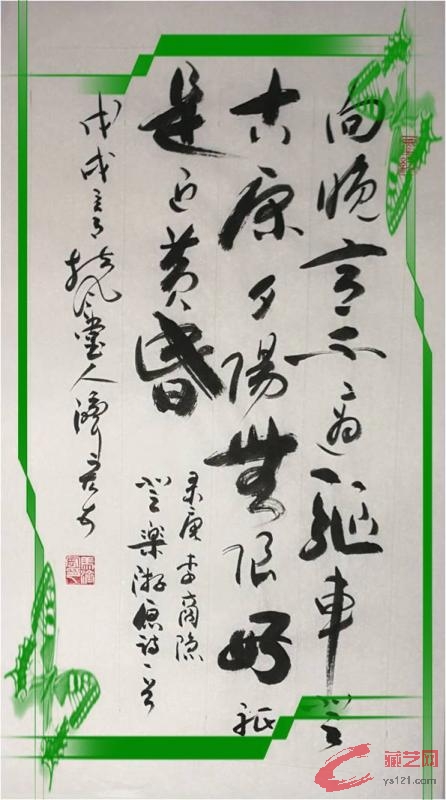 向晚意不適驅車登
古原夕陽無限好秖
是近黄昏
录唐李商隐
登樂游原诗一首
戊戌 堂人
藏艺网
ys121.com